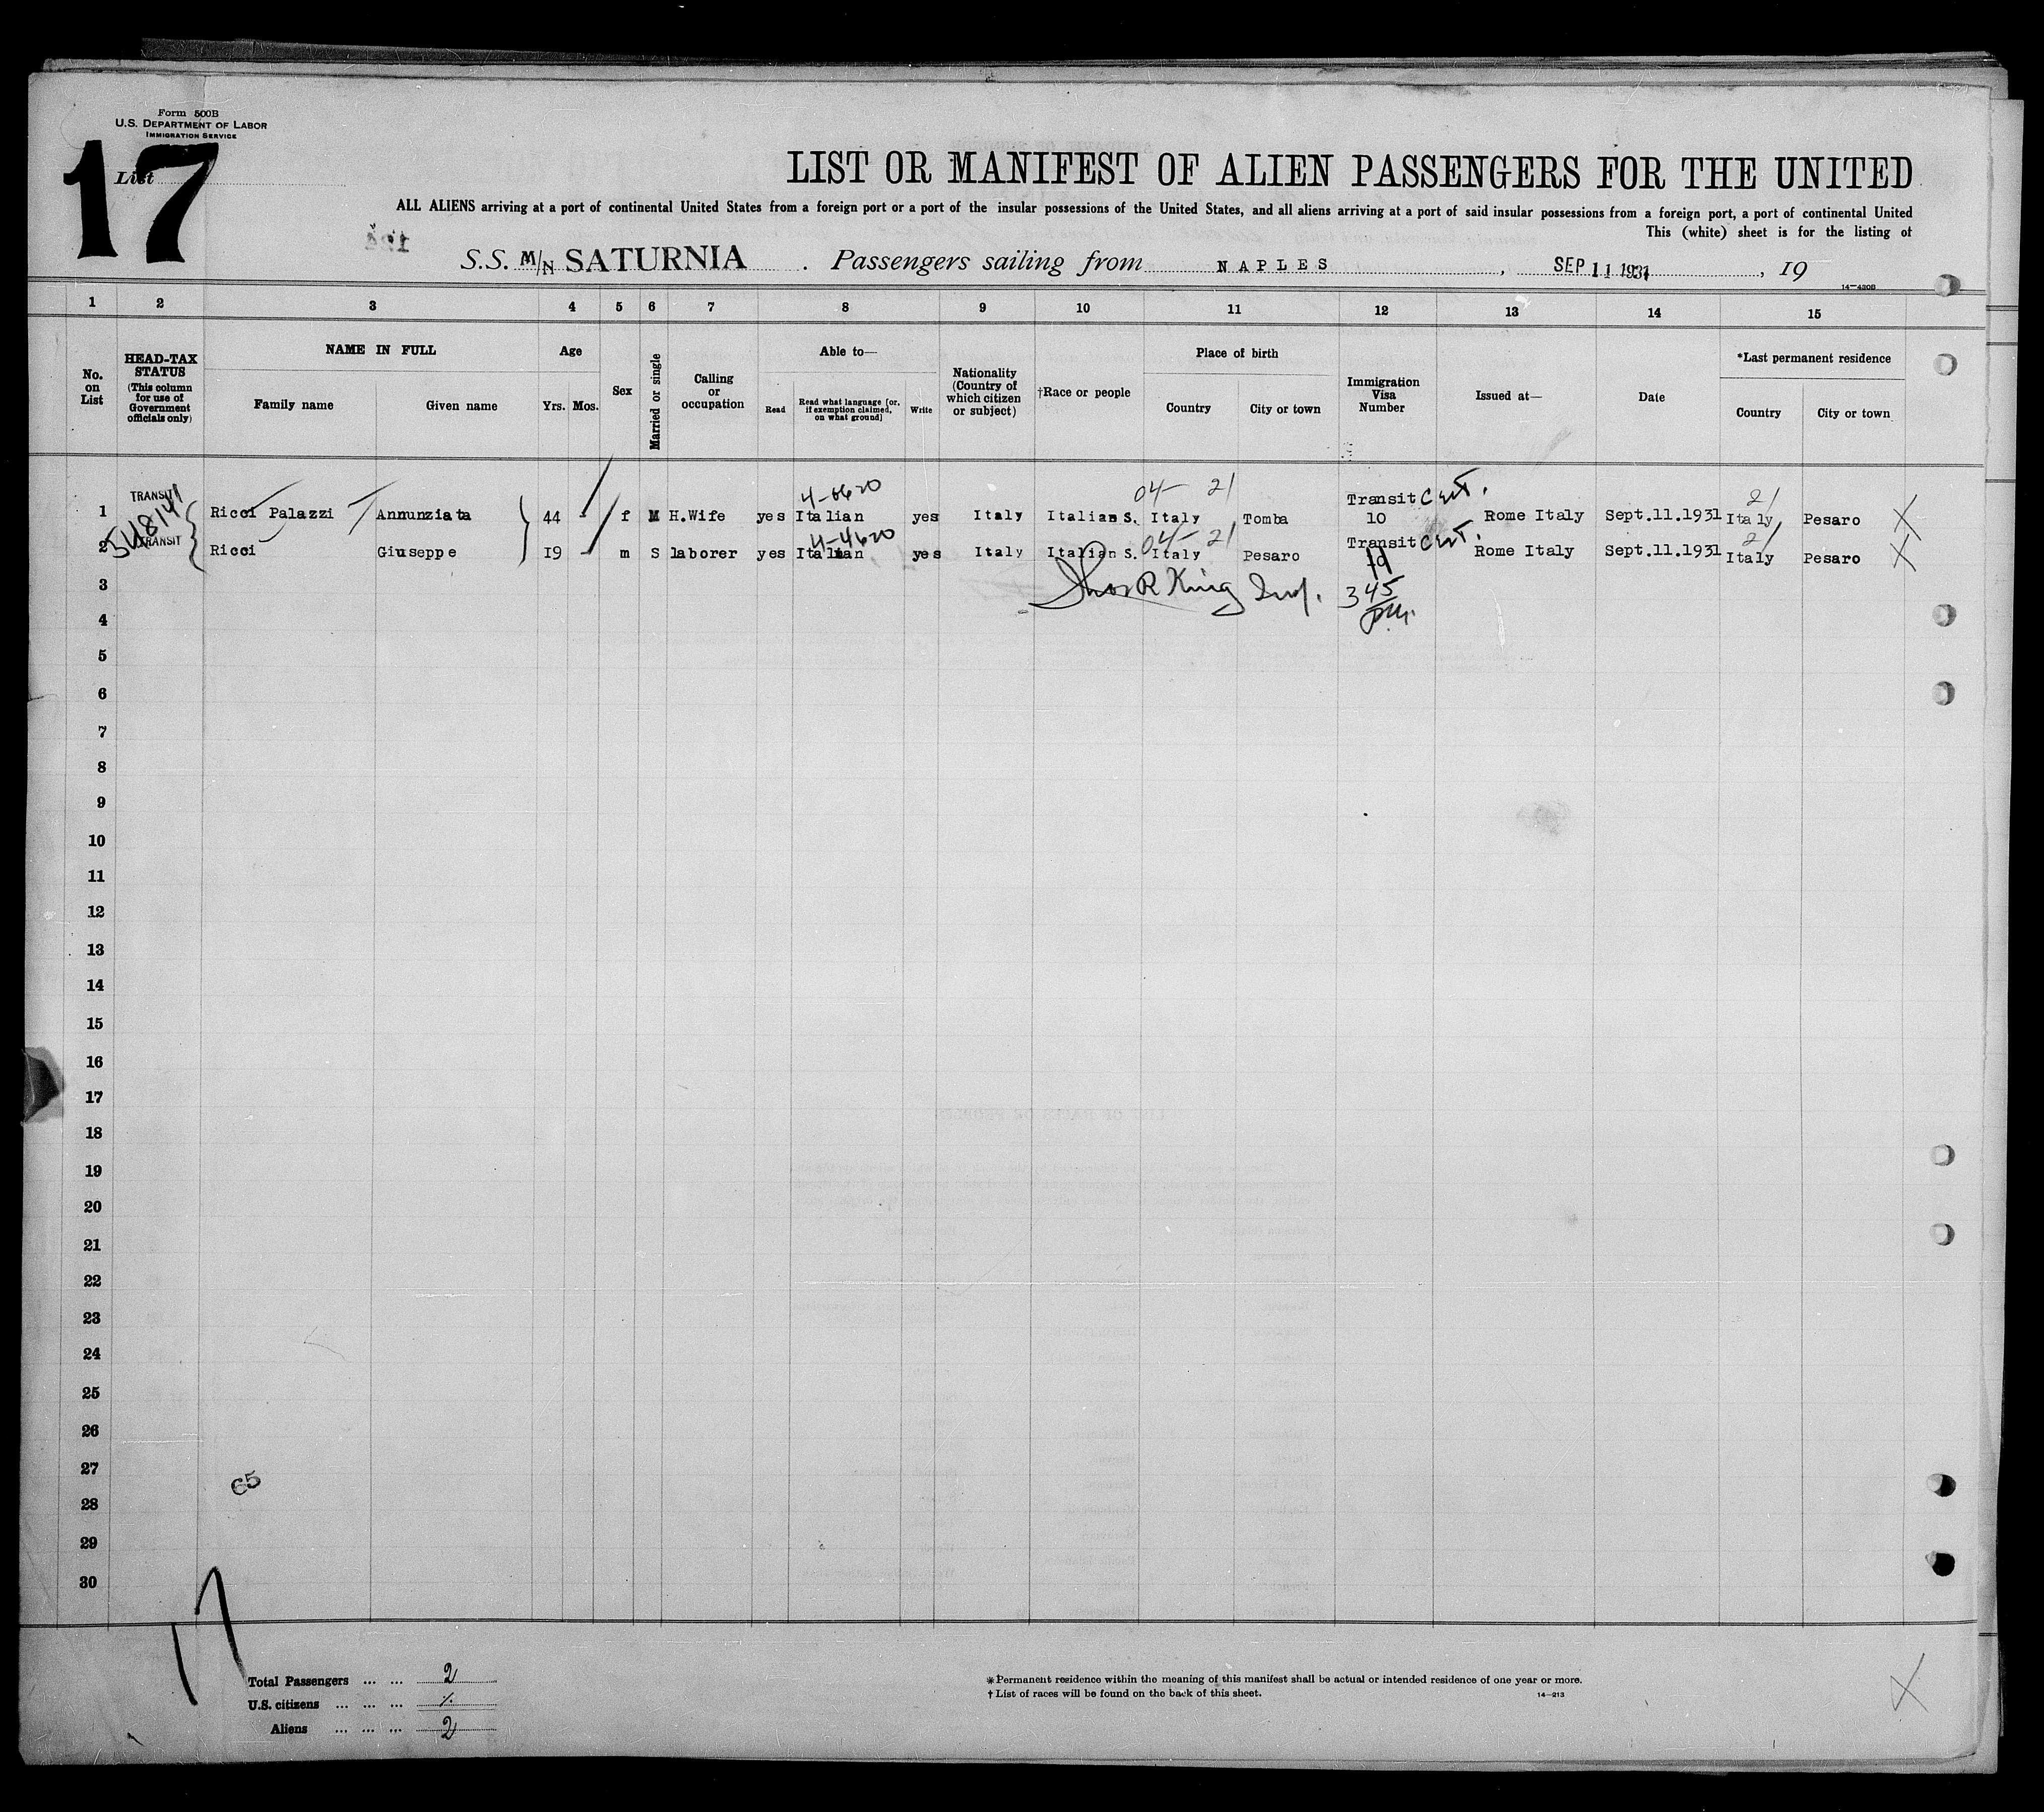 Form 500B
U.S. DEPARTMENT OF LABOR
IMMIGRATION SERVICE
List 17
LIST OR MANIFEST OF ALIEN PASSENGERS FOR THE UNITED
ALL ALIENS arriving at a port of continental United States from a foreign port or a port of the insular possessions of the United States, and all aliens arriving at a port of said insular possessions from a foreign port, a port of continental United
This (white) sheet is for the listing of
S.S. M/N SATURNIA. Passengers sailing from NAPLES, SEP 11 1931, 19
14—430B
1 2 3 4 5 6 7 8 9 10 11 12 13 14 15
No. on List
HEAD-TAX STATUS (This column for use of Government officials only)
NAME IN FULL
Family name Given name
Age
Yrs. Mos.
Sex
Married or single
Calling or occupation
Able to—
Read
Read what language [or, if exemption claimed, on what ground]
Write
Nationality (Country of which citizen or subject)
†Race or people
Place of birth
Country City or town
Immigration Visa Number
Issued at—
Date
*Last permanent residence
Country City or town
4-6620 04- 21 21
1 TRANSIT Ricci Palazzi Annunziata 44 - f M H.Wife yes Italian yes Italy Italian S. Italy Tomba Transit Cert. 10 Rome Italy Sept.11.1931 Italy Pesaro X
54814
4-4620 04- 21 21
2 TRANSIT Ricci Giuseppe 19 - m S laborer yes Italian yes Italy Italian S. Italy Pesaro Transit Cert. Rome Italy Sept.11.1931 Italy Pesaro X
3 Thos R King Insp. 3 45 pm.
4
5
6
7
8
9
10
11
12
13
14
15
16
17
18
19
20
21
22
23
24
25
26
27
65
28
29
30
17
Total Passengers ... ... 2
U.S. citizens ... ... ...
Aliens ... ... ... 2
*Permanent residence within the meaning of this manifest shall be actual or intended residence of one year or more.
†List of races will be found on the back of this sheet.
14—213
X